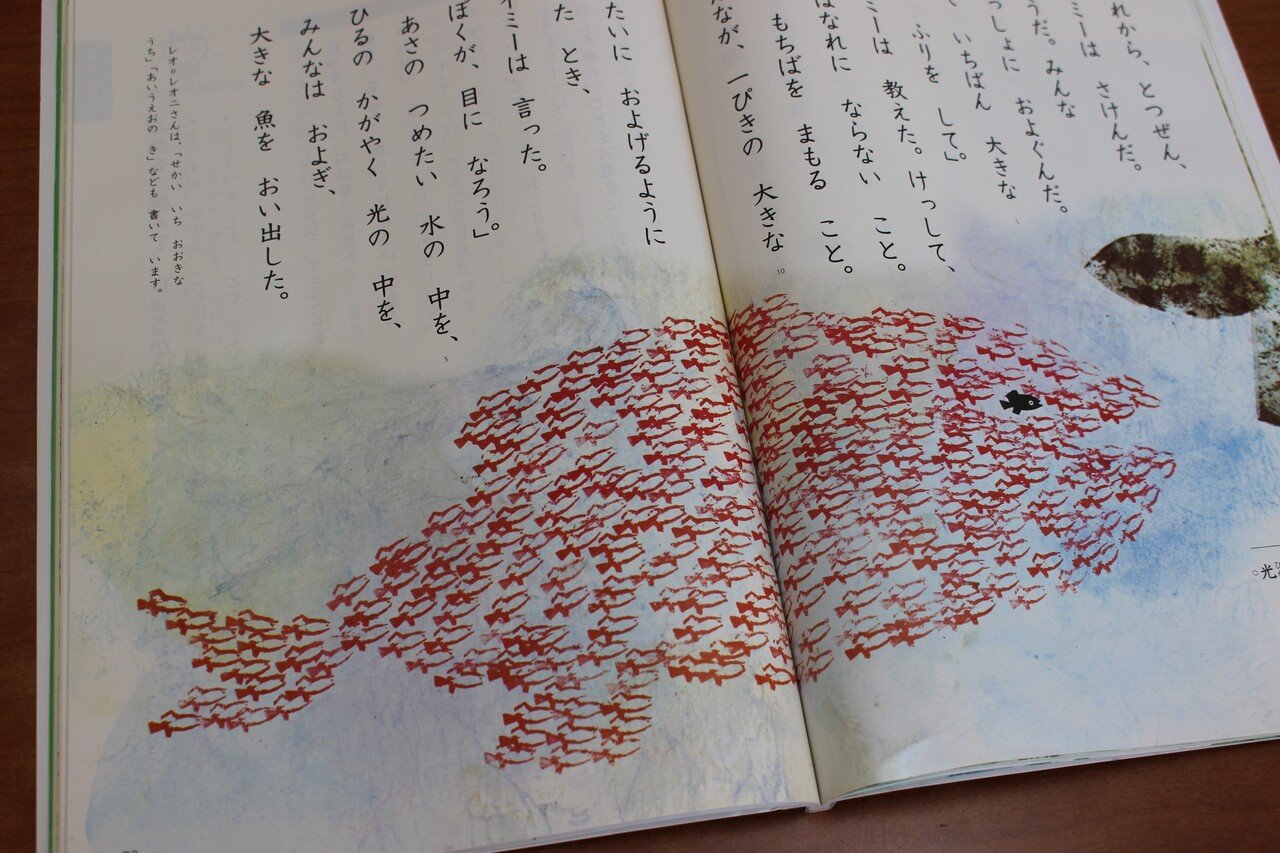 れから、とつぜん、
ミーは さけんだ。
うだ。みんな
っしょに およぐんだ。
いちばん 大きな
ふりを して。」
ミーは 教えた。けっして、
はなれに ならない こと。
もちばを まもる こと。
なが、一ぴきの 大きな
たいに およげるように
た とき、
イミーは 言った。
ぼくが、目に なろう。」
あさの つめたい 水の 中を、
ひるの かがやく 光の 中を、
みんなは およぎ、
大きな 魚を おい出した。
レオ=レオニさんは、「せかい いち おおきな
うち」「あいうえおの き」なども 書いて います。
5
10
5
光